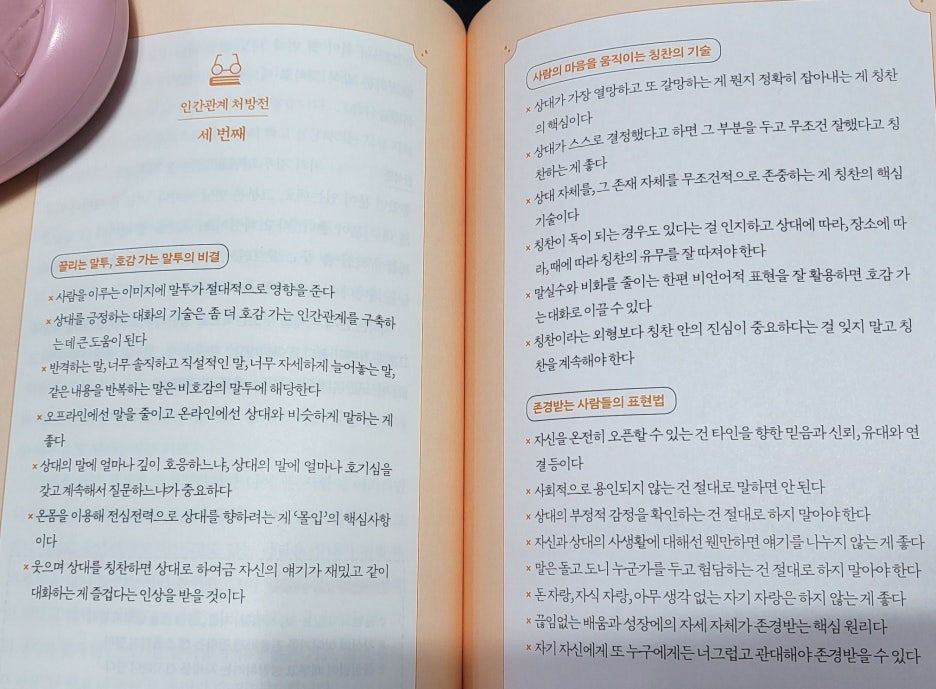 인간관계 처방전
세 번째
끌리는 말투, 호감 가는 말투의 비결
× 사람을 이루는 이미지에 말투가 절대적으로 영향을 준다
× 상대를 긍정하는 대화의 기술은 좀 더 호감 가는 인간관계를 구축하
는 데 큰 도움이 된다
× 반격하는 말, 너무 솔직하고 직설적인 말, 너무 자세하게 늘어놓는 말,
같은 내용을 반복하는 말은 비호감의 말투에 해당한다
× 오프라인에선 말을 줄이고 온라인에선 상대와 비슷하게 말하는 게
좋다
× 상대의 말에 얼마나 깊이 호응하느냐, 상대의 말에 얼마나 호기심을
갖고 계속해서 질문하느냐가 중요하다
× 온몸을 이용해 전심전력으로 상대를 향하려는 게 ‘몰입’의 핵심사항
이다
× 웃으며 상대를 칭찬하면 상대로 하여금 자신의 얘기가 재밌고 같이
대화하는 게 즐겁다는 인상을 받을 것이다
사람의 마음을 움직이는 칭찬의 기술
× 상대가 가장 열망하고 또 갈망하는 게 뭔지 정확히 잡아내는 게 칭찬
의 핵심이다
× 상대가 스스로 결정했다고 하면 그 부분을 두고 무조건 잘했다고 칭
찬하는 게 좋다
× 상대 자체를, 그 존재 자체를 무조건적으로 존중하는 게 칭찬의 핵심
기술이다
× 칭찬이 독이 되는 경우도 있다는 걸 인지하고 상대에 따라, 장소에 따
라, 때에 따라 칭찬의 유무를 잘 따져야 한다
× 말실수와 비화를 줄이는 한편 비언어적 표현을 잘 활용하면 호감 가
는 대화로 이끌 수 있다
× 칭찬이라는 외형보다 칭찬 안의 진심이 중요하다는 걸 잊지 말고 칭
찬을 계속해야 한다
존경받는 사람들의 표현법
× 자신을 온전히 오픈할 수 있는 건 타인을 향한 믿음과 신뢰, 유대와 연
결 등이다
× 사회적으로 용인되지 않는 건 절대로 말하면 안 된다
× 상대의 부정적 감정을 확인하는 건 절대로 하지 말아야 한다
× 자신과 상대의 사생활에 대해선 웬만하면 얘기를 나누지 않는 게 좋다
× 말은 돌고 도니 누군가를 두고 험담하는 건 절대로 하지 말아야 한다
× 돈 자랑, 자식 자랑, 아무 생각 없는 자기 자랑은 하지 않는 게 좋다
× 끊임없는 배움과 성장에의 자세 자체가 존경받는 핵심 원리다
× 자기 자신에게 또 누구에게든 너그럽고 관대해야 존경받을 수 있다